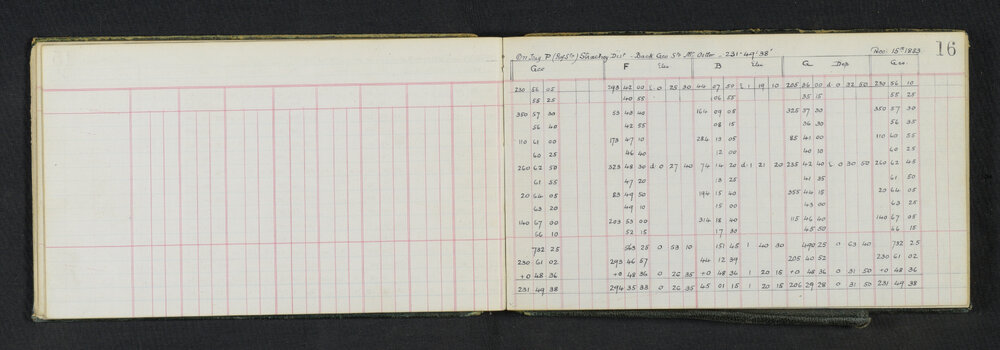 16
On Trig P ( ) Strachey Dist - Back Geo Stn Mt Otter - 231°49'38" Nov. 15th 1883
Geo F Elev B Elev G Dep Geo
230 56 05 293 42 00 E 0 25 30 44 07 50 E 1 19 10 205 36 00 d 0 32 50 230 56 10
55 25 40 55 06 55 35 15 55 25
350 57 30 53 43 40 164 09 05 325 37 30 350 57 30
56 40 42 55 08 15 36 30 56 35
110 61 00 173 47 10 284 13 05 85 41 00 110 60 55
60 25 46 40 12 00 40 10 60 25
260 62 50 323 48 30 d 0 27 40 74 14 20 d 1 21 20 235 42 40 E 0 30 50 260 62 45
61 55 47 20 13 25 41 35 61 50
20 64 05 83 49 50 194 15 40 355 44 15 20 64 05
63 20 49 10 15 00 43 00 63 25
140 67 00 203 53 00 314 18 40 115 46 40 140 67 05
66 10 52 15 17 30 45 50 66 15
732 25 563 25 0 53 10 151 45 1 40 30 490 25 0 63 40 732 25
230 61 02 293 46 57 44 12 39 205 40 52 230 61 02
+0 48 36 +0 48 36 0 26 35 +0 48 36 1 20 15 +0 48 36 0 31 50 +0 48 36
231 49 38 294 35 33 0 26 35 45 01 15 1 20 15 206 29 28 0 31 50 231 49 38